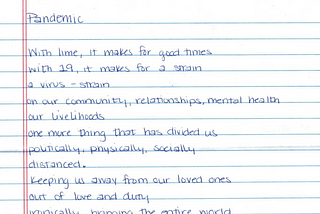 Pandemic
With lime, it makes for good times
With 19, it makes for a strain
a virus - strain
on our community, relationships, mental health
our livelihoods
one more thing that has divided us
politically, physically, socially
distanced.
Keeping us away from our loved ones
out of love and duty
ironically, bringing the entire world